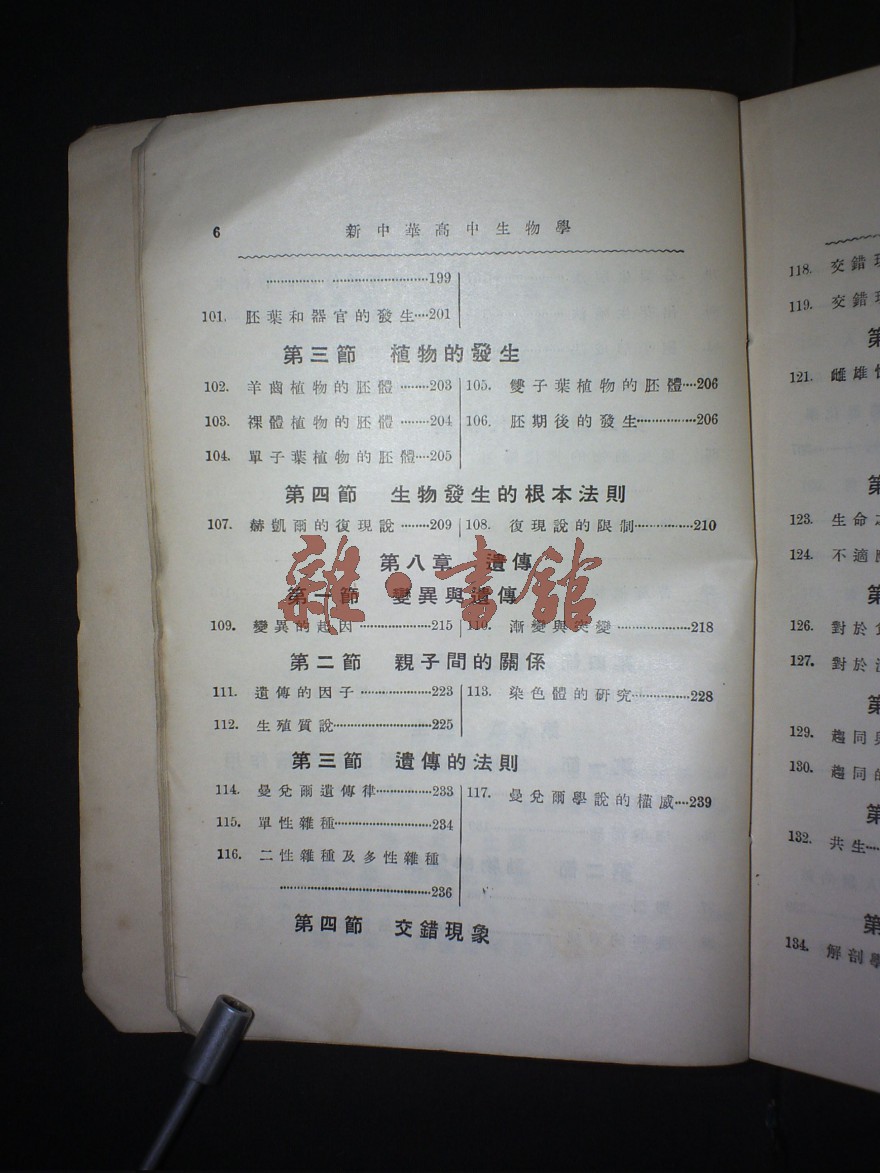 6 新中華高中生物學
……………… …………………………199
101. 胚葉和器官的發生…201
第三節 植物的發生
102. 羊齒植物的胚體……203
103. 裸體植物的胚體……204
104. 單子葉植物的胚體…205
105. 雙子葉植物的胚體…206
106. 胚期後的發生……………206
第四節 生物發生的根本法則
107. 赫凱爾的復現說……209
108. 復現說的限制……………210
第八章 遺傳
第一節 變異與遺傳
109. 變異的起因………………215
110. 漸變與突變………………218
第二節 親子間的關係
111. 遺傳的因子………………223
112. 生殖質說……………………225
113. 染色體的研究……………228
第三節 遺傳的法則
114. 曼兌爾遺傳律……………233
115. 單性雜種……………………234
116. 二性雜種及多性雜種
……………………………………236
117. 曼兌爾學說的權威…239
第四節 交錯現象
雜·書館
118. 交錯
119. 交錯
第
121. 雌雄
第
123. 生命
124. 不適
第
126. 對於
127. 對於
第
129. 趨同
130. 趨同的
第
132. 共生…
第
134. 解剖